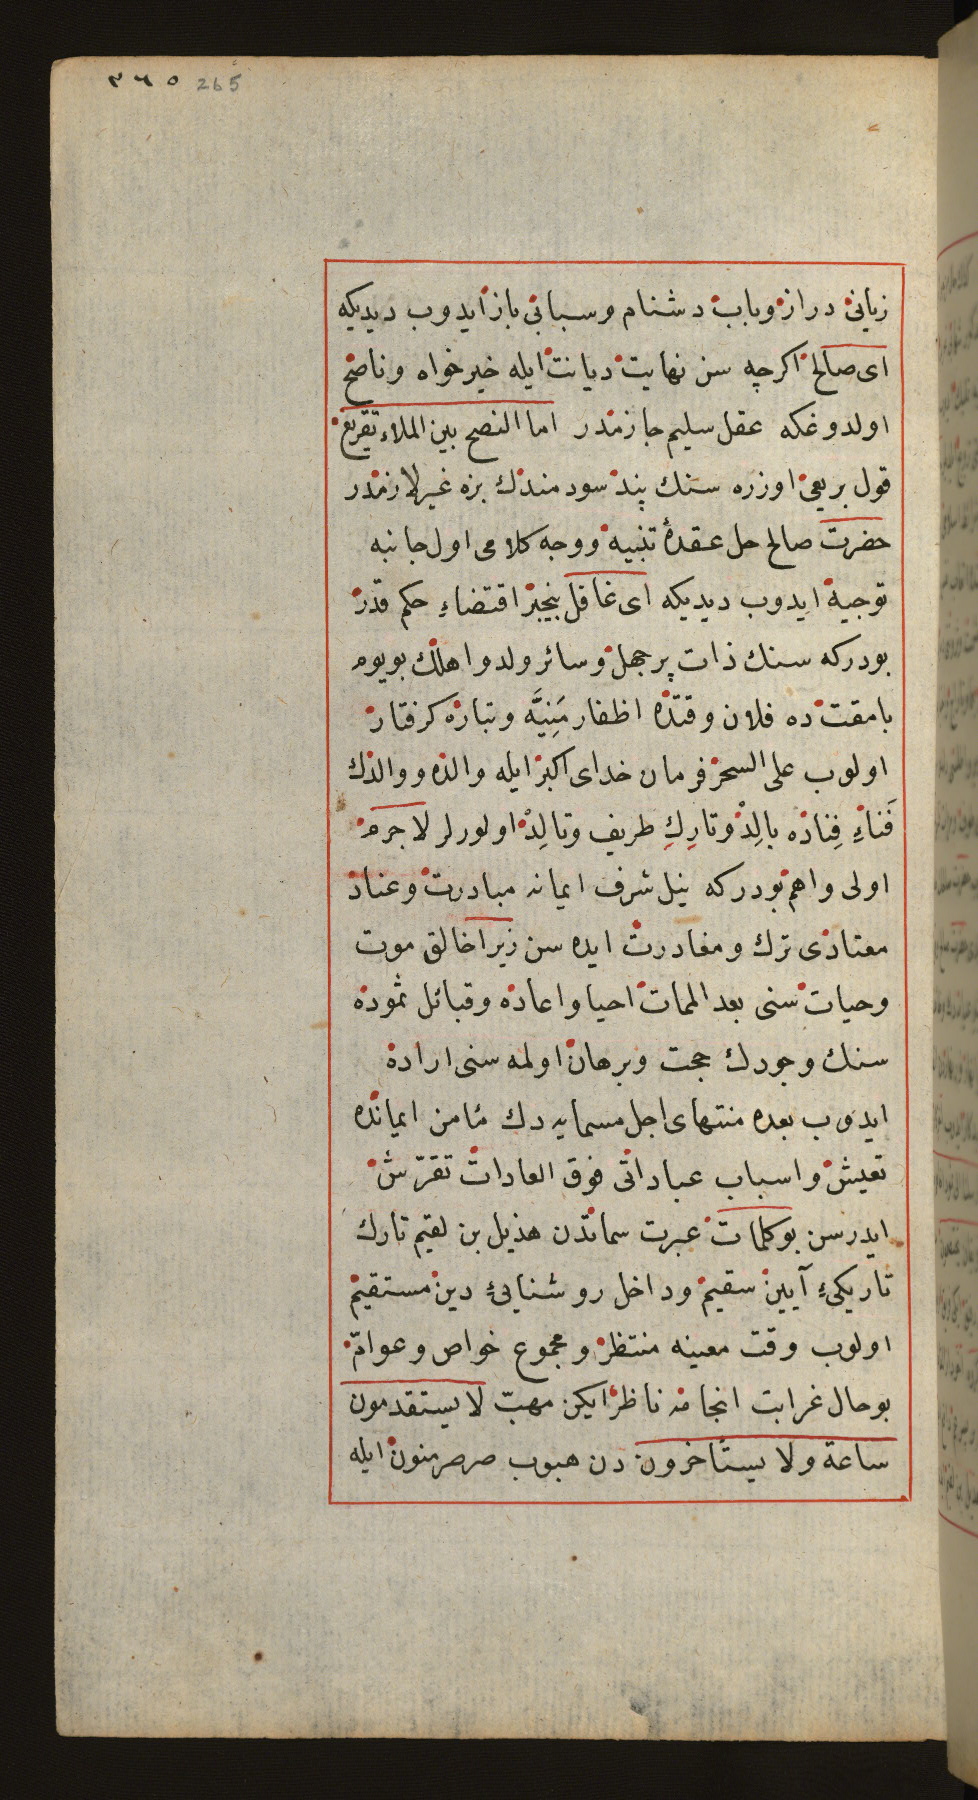 ٣٦٥ 265
زبانی دراز وباب دشنام وسبابی باز ایدوب دیدیکه
ای صالح اکرچه سن نهایت دیانت ایله خیرخواه وناصح
اولدوغکه عقل سلیم جازمدر اما النصح بین الملاء تقریع
قول بریعی اوزره سنك پند سودمندك بزه غیر لازمدر
حضرت صالح حل عقدۀ تنبیه ووجه کلامی اول جانبه
توجیه ایدوب دیدیکه ای غافل بیخبر اقتضاء حکم قدر
بودرکه سنك ذات پر جهل وسائر ولد واهلك بویوم
بامقت ده فلان وقتده اظفار مَنِیَّه وتباره کرفتار
اولوب علی السحر فرمان خدای اکبر ایله والده ووالدك
فَناءِ فِناده بالِد وتارِكِ طریف وتالِد اولورلر لا جرم
اولی واهم بودرکه نیل شرف ایمانه مبادرت وعناد
معتادی ترك ومغادرت ایده سن زیرا خالق موت
وحیات سنی بعد الممات احیا واعاده وقبائل ثموده
سنك وجودك حجت وبرهان اولمه سنی اراده
ایدوب بعده منتهای اجل مسمایه دك مأمن ایمانده
تعیش واسباب عباداتی فوق العادات تقرّش
ایدرسن بوکلمات عبرت سماتدن هذیل بن لقیم تارك
تاریکیء آیین سقیم وداخل روشناییء دین مستقیم
اولوب وقت معینه منتظر ومجموع خواص وعوامّ
بوحال غرابت انجامه ناظر ایکن مهبّ لا یستقدمون
ساعة ولا یستأخرون دن هبوب صرصر منون ایله